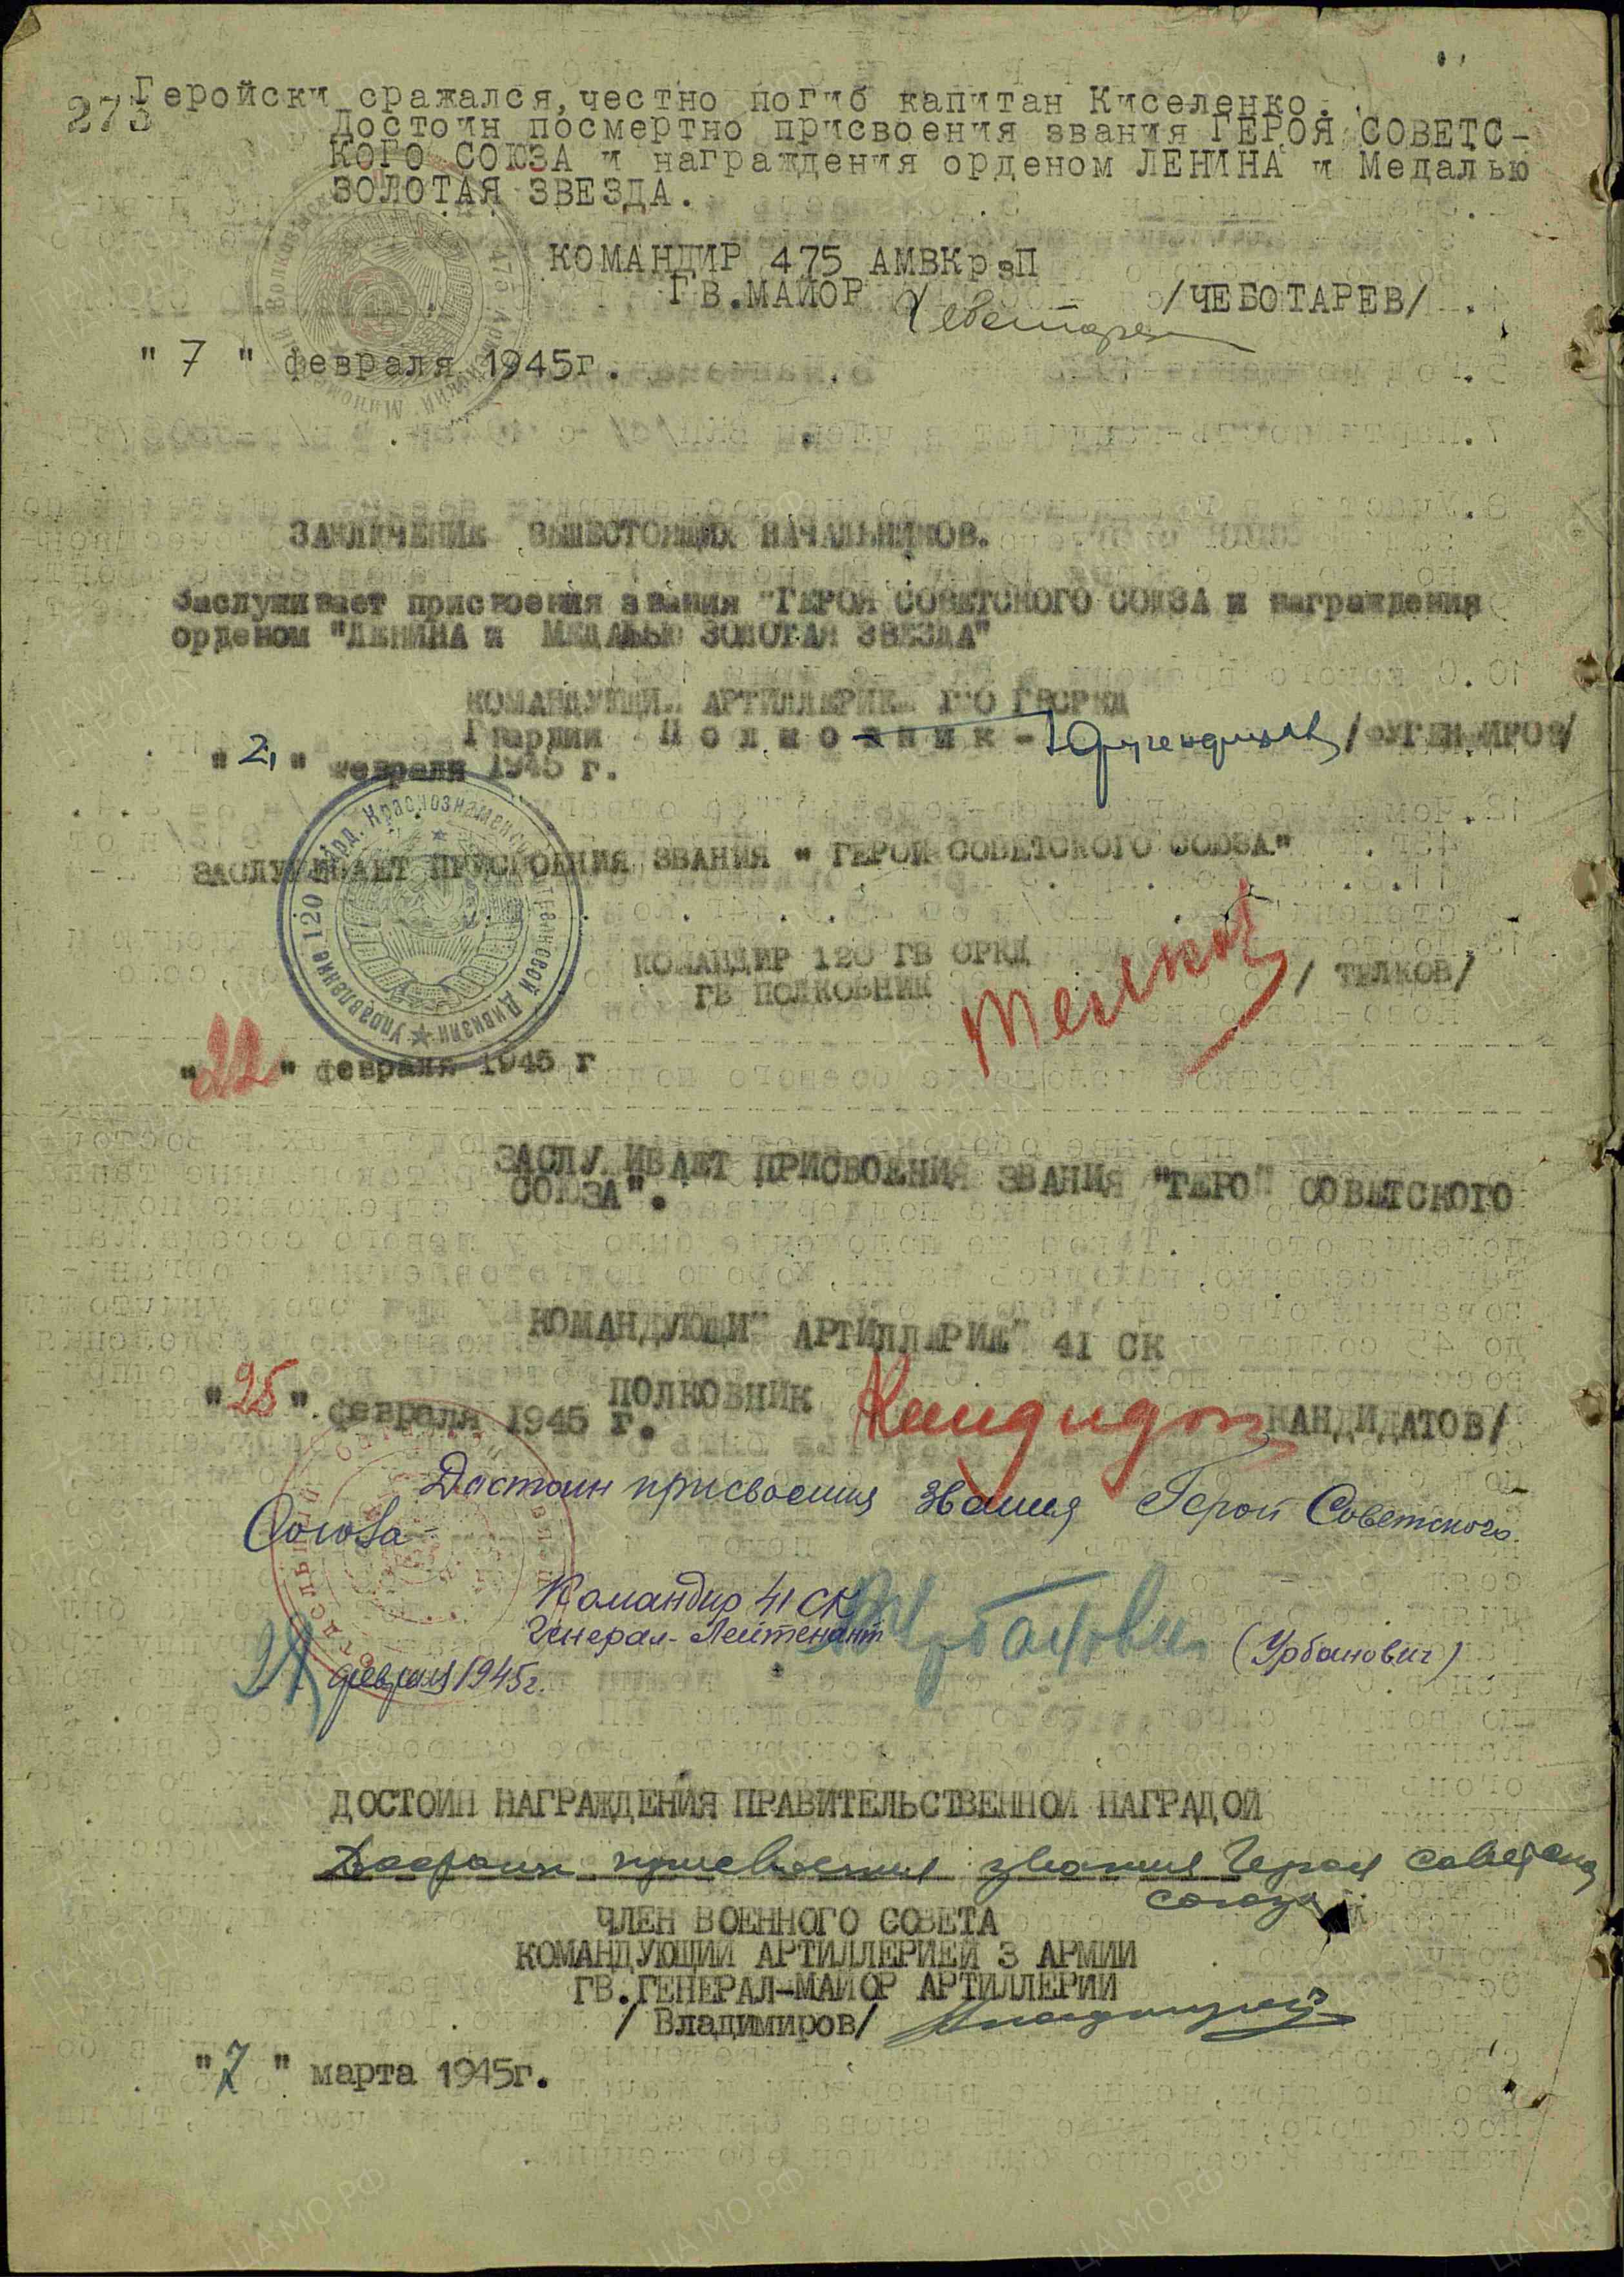 273
Геройски сражался, честно погиб капитан Киселенко.
Достоин посмертно присвоения звания ГЕРОЯ СОВЕТС-
КОГО СОЮЗА и награждения орденом ЛЕНИНА и Медалью
ЗОЛОТАЯ ЗВЕЗДА.
КОМАНДИР 475 АМВКрзП
ГВ.МАЙОР /ЧЕБОТАРЕВ/
"7" февраля 1945г.
ЗАКЛЮЧЕНИЕ ВЫШЕСТОЯЩИХ НАЧАЛЬНИКОВ.
Заслуживает присвоения звания "ГЕРОЯ СОВЕТСКОГО СОЮЗА и награждения
орденом "ЛЕНИНА и МЕДАЛЬЮ ЗОЛОТАЯ ЗВЕЗДА"
КОМАНДУЮЩИ АРТИЛЛЕРИЕ 120 ГВСРКД
Гвардии Полковник -
" 2, " февраля 1945 г.
Управление 120 Гвард. Краснознаменной Стрелковой Дивизии
ЗАСЛУЖИВАЕТ ПРИСВОЕНИЯ ЗВАНИЯ " ГЕРОЙ СОВЕТСКОГО СОЮЗА"
КОМАНДИР 120 ГВ СРКД
ГВ ПОЛКОВНИК Телков / ТЕЛКОВ/
"22" февраля 1945 г
ЗАСЛУ ИВАЕТ ПРИСВОЕНИЯ ЗВАНИЯ "ГЕРО" СОВЕТСКОГО
СОЮЗА".
КОМАНДУЮЩИ" АРТИЛЛЕРИЕ" 41 СК
ПОЛКОВНИК Кандидатов КАНДИДАТОВ/
"25". февраля 1945 г.
Достоин присвоения звания Герой Советского
Союза
Командир 41 СК
Генерал-Лейтенант Урбанович (Урбанович)
февраля 1945г.
ДОСТОИН НАГРАЖДЕНИЯ ПРАВИТЕЛЬСТВЕННОЙ НАГРАДОЙ
Достоин присвоения звания Героя Советского
Союза
ЧЛЕН ВОЕННОГО СОВЕТА
КОМАНДУЮЩИЙ АРТИЛЛЕРИЕЙ 3 АРМИИ
ГВ.ГЕНЕРАЛ-МАЙОР АРТИЛЛЕРИИ
/ Владимиров/
"7" марта 1945г.